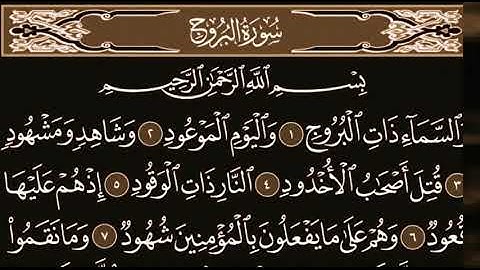 سُورَةُ البُرُوجِ
بِسْمِ اللَّهِ الرَّحْمَٰنِ الرَّحِيمِ
وَالسَّمَآءِ ذَاتِ الْبُرُوجِ ١ وَالْيَوْمِ الْمَوْعُودِ ٢ وَشَاهِدٍ وَمَشْهُودٍ
٣ قُتِلَ أَصْحَابُ الْأُخْدُودِ ٤ النَّارِ ذَاتِ الْوَقُودِ ٥ إِذْ هُمْ عَلَيْهَا
قُعُودٌ ٦ وَهُمْ عَلَىٰ مَا يَفْعَلُونَ بِالْمُؤْمِنِينَ شُهُودٌ ٧ وَمَا نَقَمُوا۟